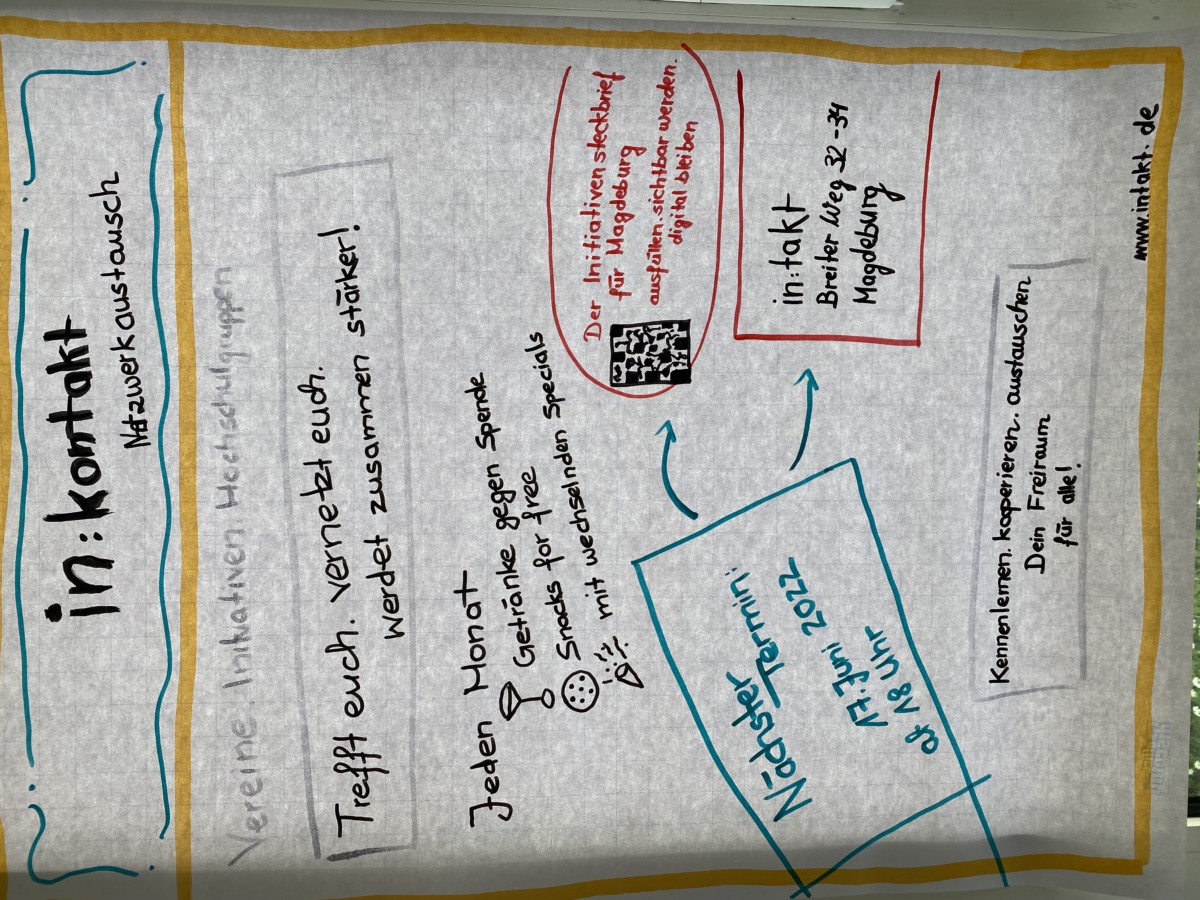 in:kontakt
Netzwerkaustausch
Vereine. Initiativen Hochschulgruppen
Trefft euch. vernetzt euch.
werdet zusammen stärker!
Jeden Monat
Getränke gegen Spende
Snacks for free
mit wechselnden Specials
Der Initiativensteckbrief
für Magdeburg
ausfüllen. sichtbar werden.
digital bleiben
Nächster
Termin:
17. Juni 2022
ab 18 Uhr
in:takt
Breiter Weg 32-34
Magdeburg
Kennenlernen. kooperieren. austauschen.
Dein Freiraum
für alle!
www.intakt.de